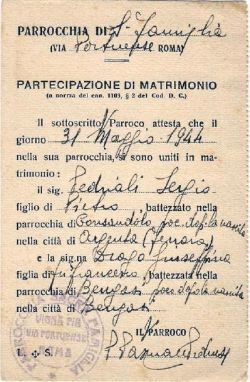 PARROCCHIA DI S. Famiglia
(VIA Portuense ROMA)
PARTECIPAZIONE DI MATRIMONIO
(a norma del can. 1103, § 2 del Cod. D. C.)
Il sottoscritto Parroco attesta che il
giorno 31 Maggio 1944
nella sua parrocchia, si sono uniti in ma-
trimonio:
il sig. Pedriali Sergio
figlio di Pietro, battezzato nella
parrocchia di Consandolo
nella città di Argenta (Ferrara)
e la sig.na Drago Giuseppina
figlia di fu Francesco, battezzata nella
parrocchia di Bengasi
nella città di Bengasi
IL PARROCO
L. + S.
PARROCCHIA SACRA FAMIGLIA
VIGNA PIA
VIA PORTUENSE
ROMA